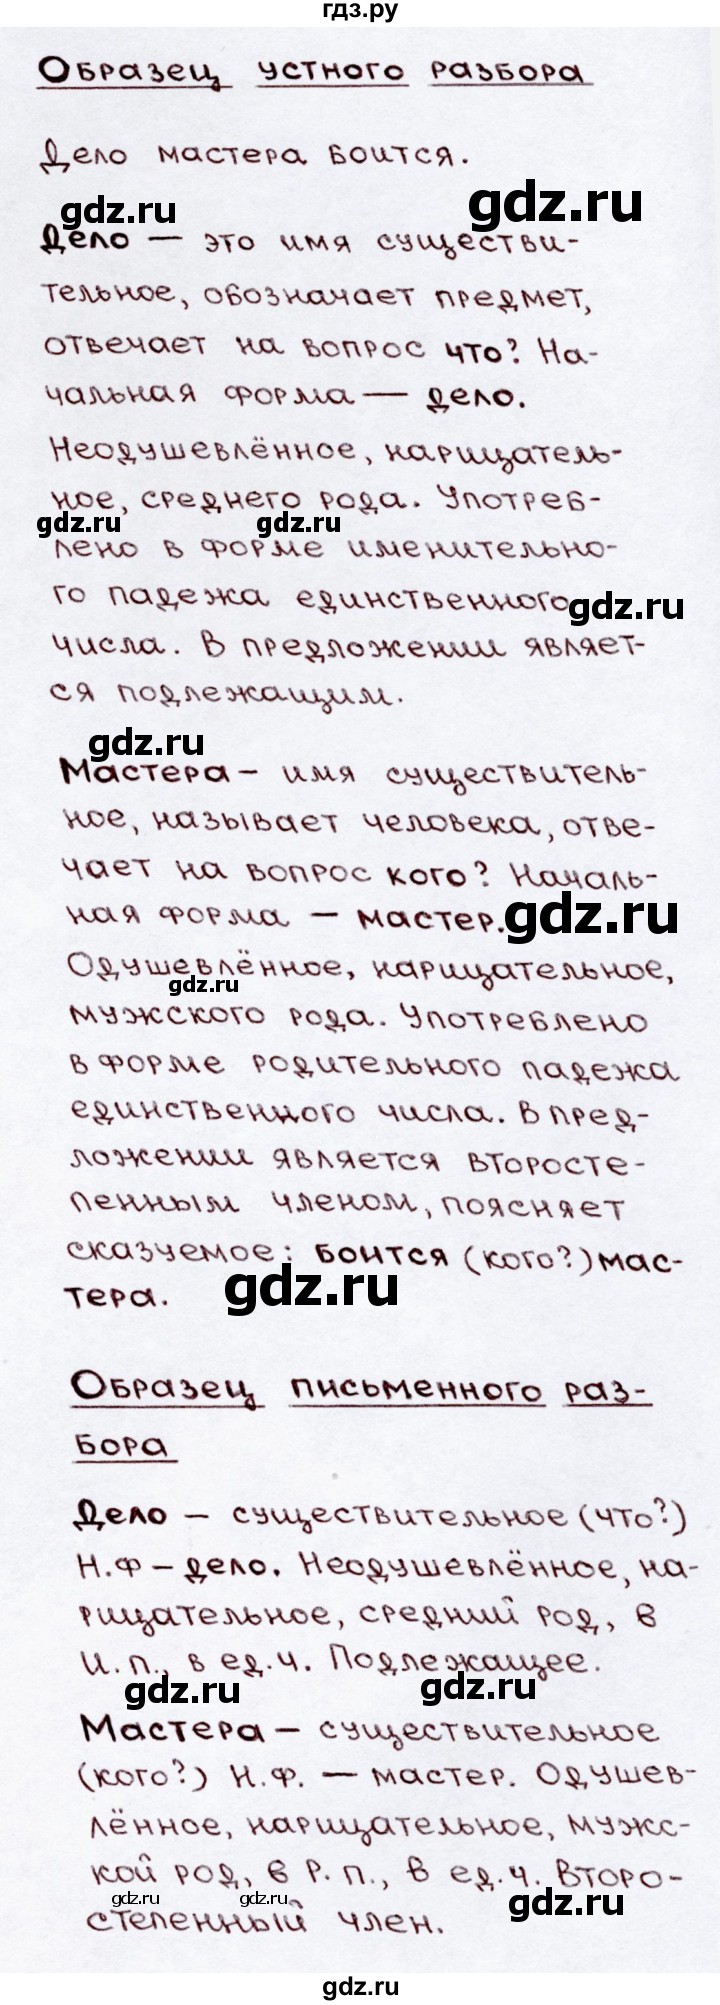 гдз.ру
Образец устного разбора
Дело мастера боится.
gdz.ru
gdz.ru
Дело — это имя существи-
тельное, обозначает предмет,
отвечает на вопрос что? На-
чальная форма — дело.
Неодушевлённое, нарицатель-
ное, среднего рода. Употреб-
gdz.ru
gdz.ru
лено в форме именительно-
го падежа единственного
gdz.ru
числа. В предложении являет-
ся подлежащим.
gdz.ru
Мастера – имя существитель-
ное, называет человека, отве-
чает на вопрос кого? Началь-
ная форма – мастер.
gdz.ru
Одушевлённое, нарицательное,
gdz.ru
мужского рода. Употреблено
в форме родительного падежа
единственного числа. В пред-
ложении является второсте-
пенным членом, поясняет
сказуемое: боится (кого?) мас-
тера.
gdz.ru
Образец письменного раз-
бора
Дело – существительное (что?)
Н.Ф – дело. Неодушевлённое, на-
рицательное, средний род, в
И.п., в ед.ч. Подлежащее.
gdz.ru
gdz.ru
Мастера – существительное
(кого?) Н.Ф. – мастер. Одушев-
лённое, нарицательное, мужс-
кой род, в Р.п., в ед.ч. Второ-
gdz.ru
gdz.ru
gdz.ru
степенный член.
gdz.ru